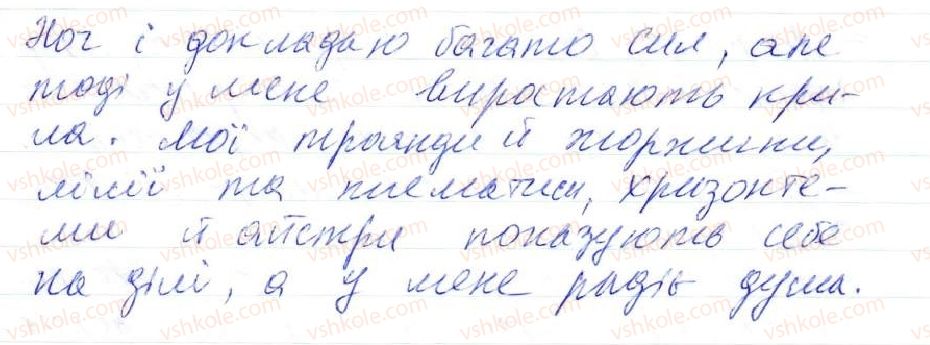 Хоч і докладаю багато сил, але
тоді у мене виростають кри-
ла. Мої троянди й жоржини,
лілії та клематиси, хризонте-
ми й айстри показують себе
на ділі, а у мене радіє душа.